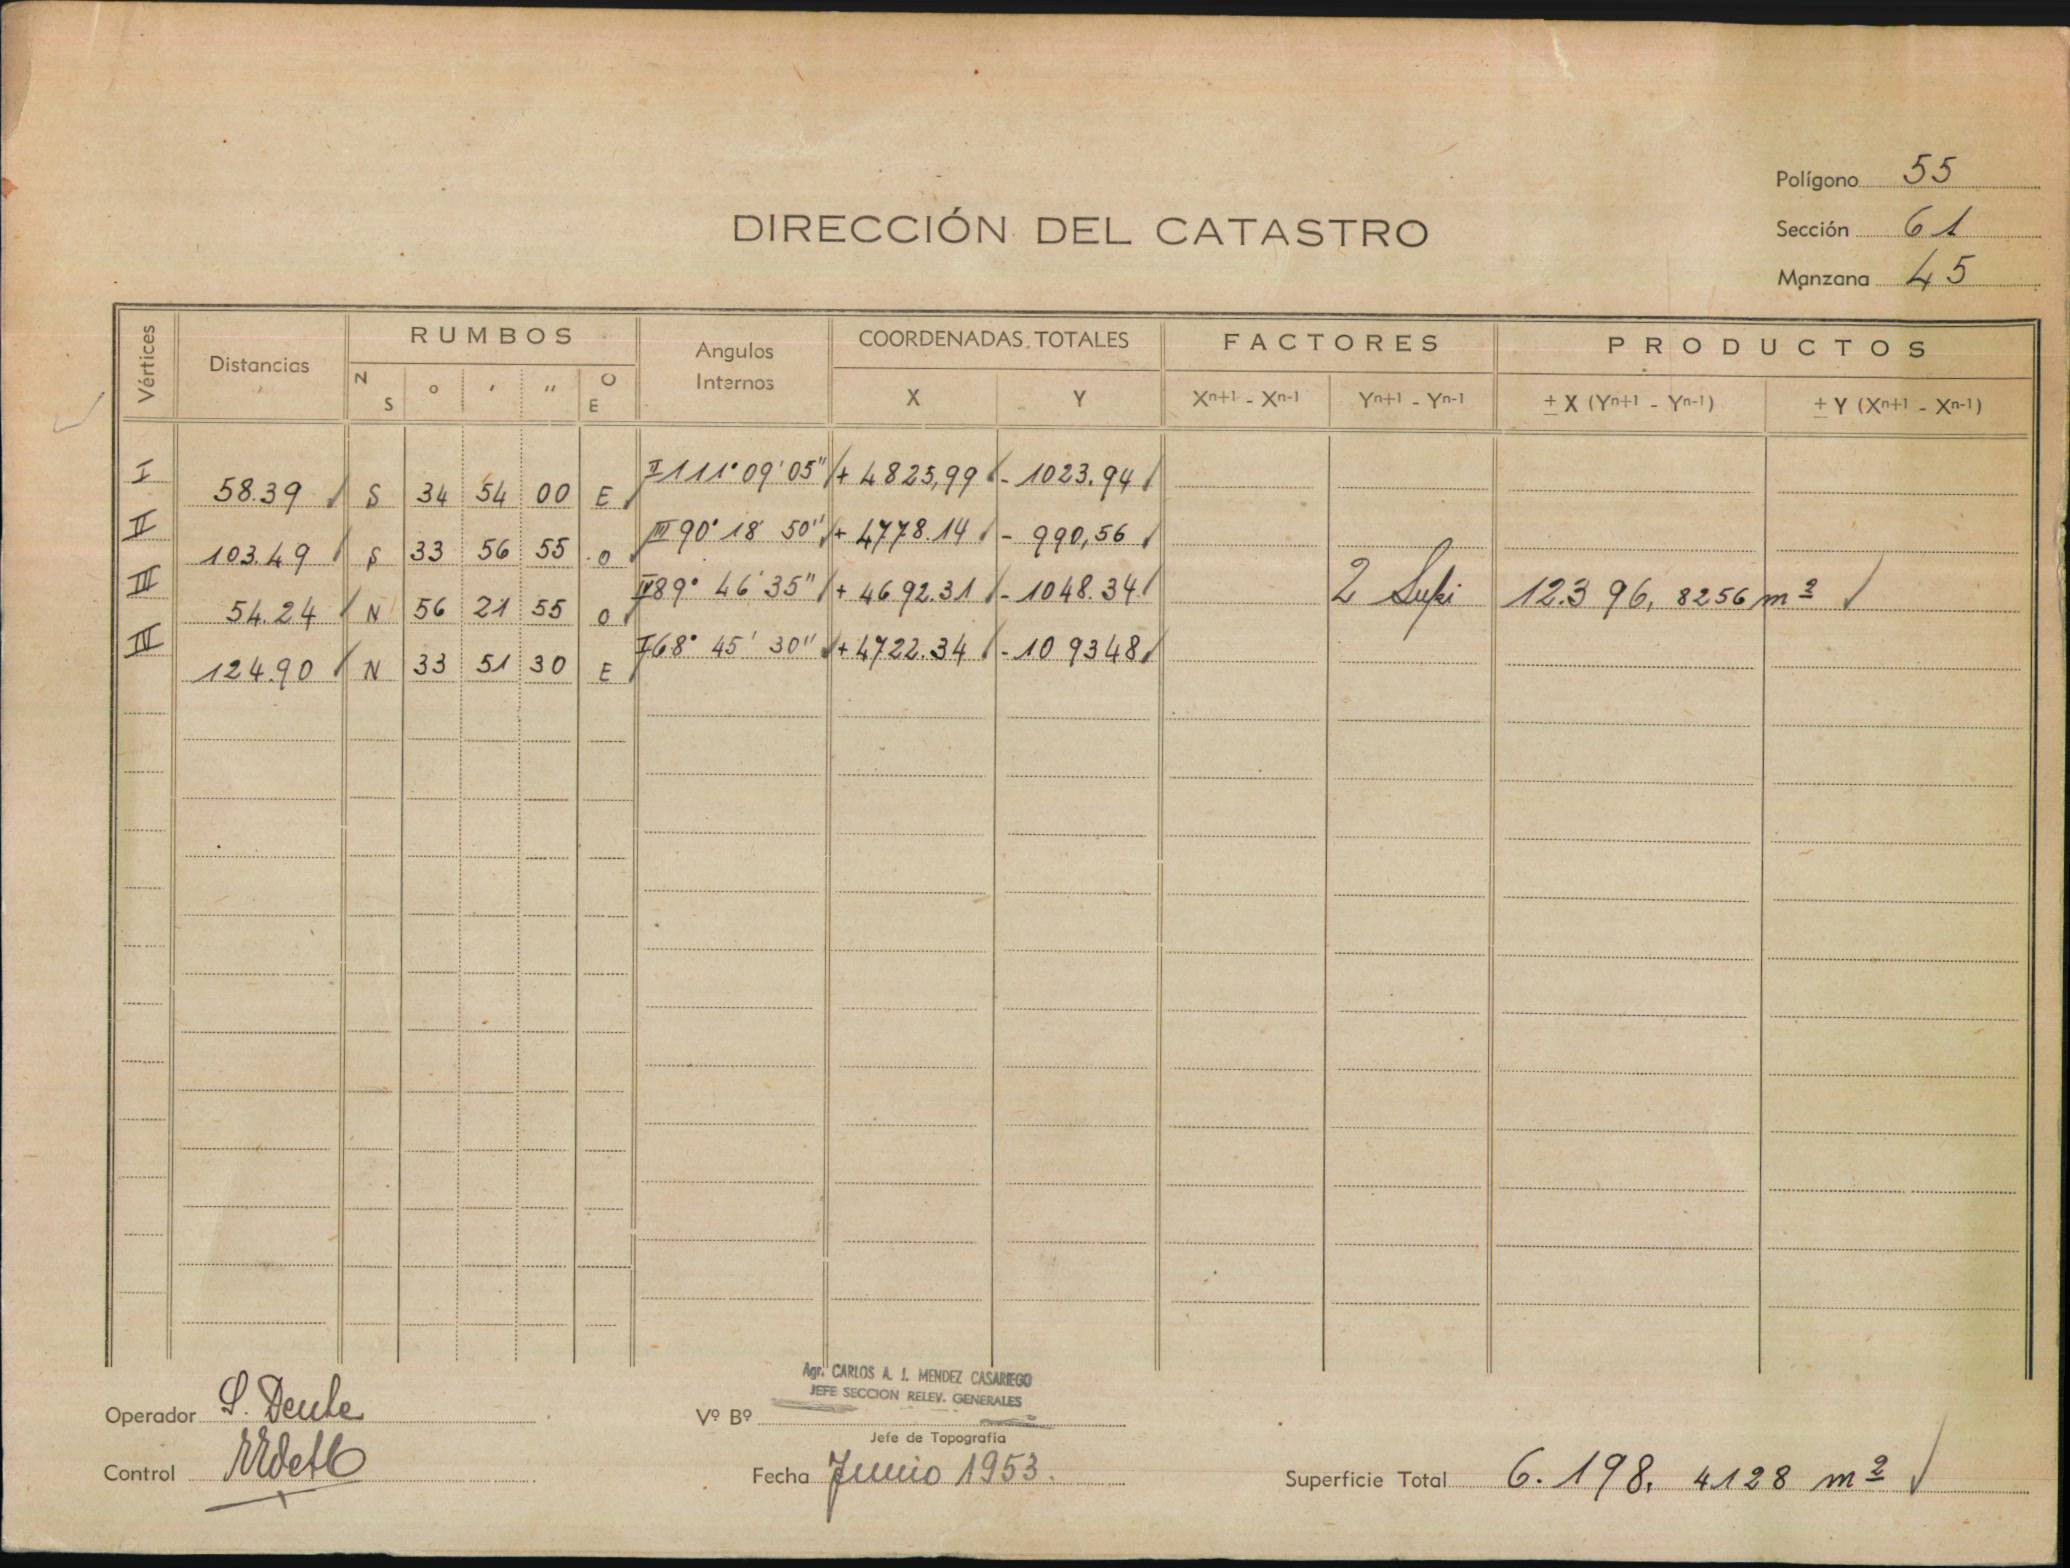 Polígono 55
DIRECCIÓN DEL CATASTRO
Sección 61
Manzana 45
Vértices Distancias RUMBOS Angulos Internos COORDENADAS TOTALES FACTORES PRODUCTOS
N S ° ' " O E X Y Xn+1 - Xn-1 Yn+1 - Yn-1 ± X (Yn+1 - Yn-1) ± Y (Xn+1 - Xn-1)
I 58.39 S 34 54 00 E II 111° 09' 05" + 4825,99 - 1023.94
II 103.49 S 33 56 55 O III 90° 18' 50" + 4778.14 - 990,56
III 54.24 N 56 21 55 O IV 89° 46' 35" + 4692.31 - 1048.34 2 Supi 12.396, 8256 m²
IV 124.90 N 33 51 30 E I 68° 45' 30" + 4722.34 - 109348
Agr. CARLOS A. J. MENDEZ CASARIEGO
JEFE SECCION RELEV. GENERALES
Operador Vº Bº
Jefe de Topografía
Control Fecha Junio 1953. Superficie Total 6.198, 4128 m²